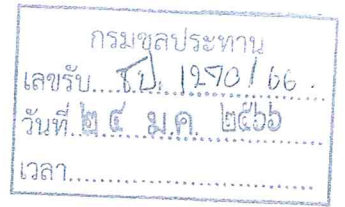 กรมชลประทาน
เลขรับ....ธป. 1290/66.
วันที่..๒๔ ม.ค. ๒๕๖๖
เวลา..............................